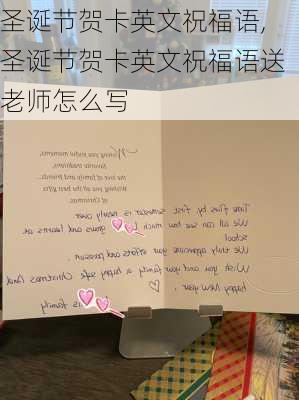 圣诞节贺卡英文祝福语,
圣诞节贺卡英文祝福语送
老师怎么写
Wishing you joyful moments,
favorite traditions,
the love of family and friends.
Wishing you all the best gifts
of Christmas.
Time flies by, first semester is nearly over
We all can see how much grows and learns at
school
We truly appreciate your efforts and passion.
Wish you and your family a happy safe Christmas and
happy New year.
's family